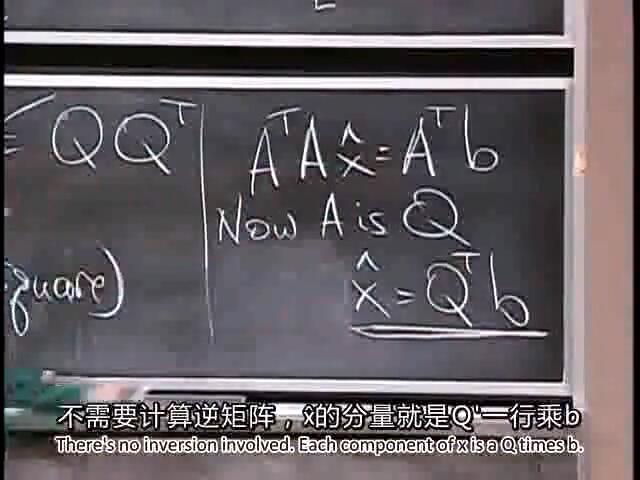 = QQᵀ
AᵀA x̂ = Aᵀb
Now A is Q
square)
x̂ = Qᵀb
不需要计算逆矩阵，x̂的分量就是Q'一行乘b
There's no inversion involved. Each component of x is a Q times b.